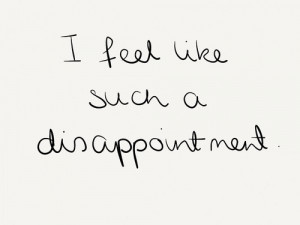 I feel like
such a
disappointment.